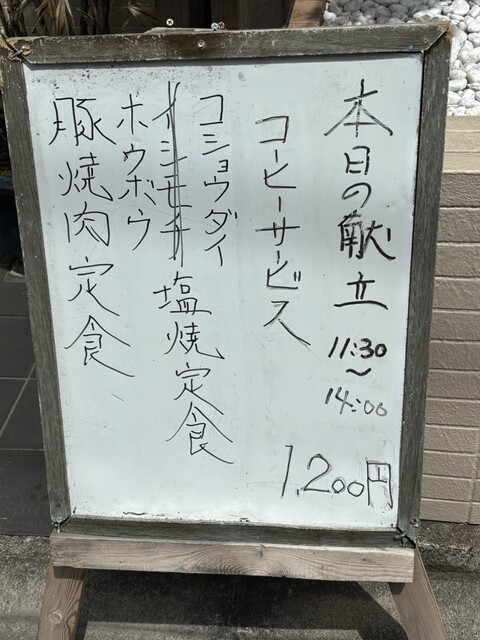 本日の献立
11:30
〜
14:00
コーヒーサービス
コショウダイ
イシモチ
ホウボウ
塩焼定食
豚焼肉定食
1,200円